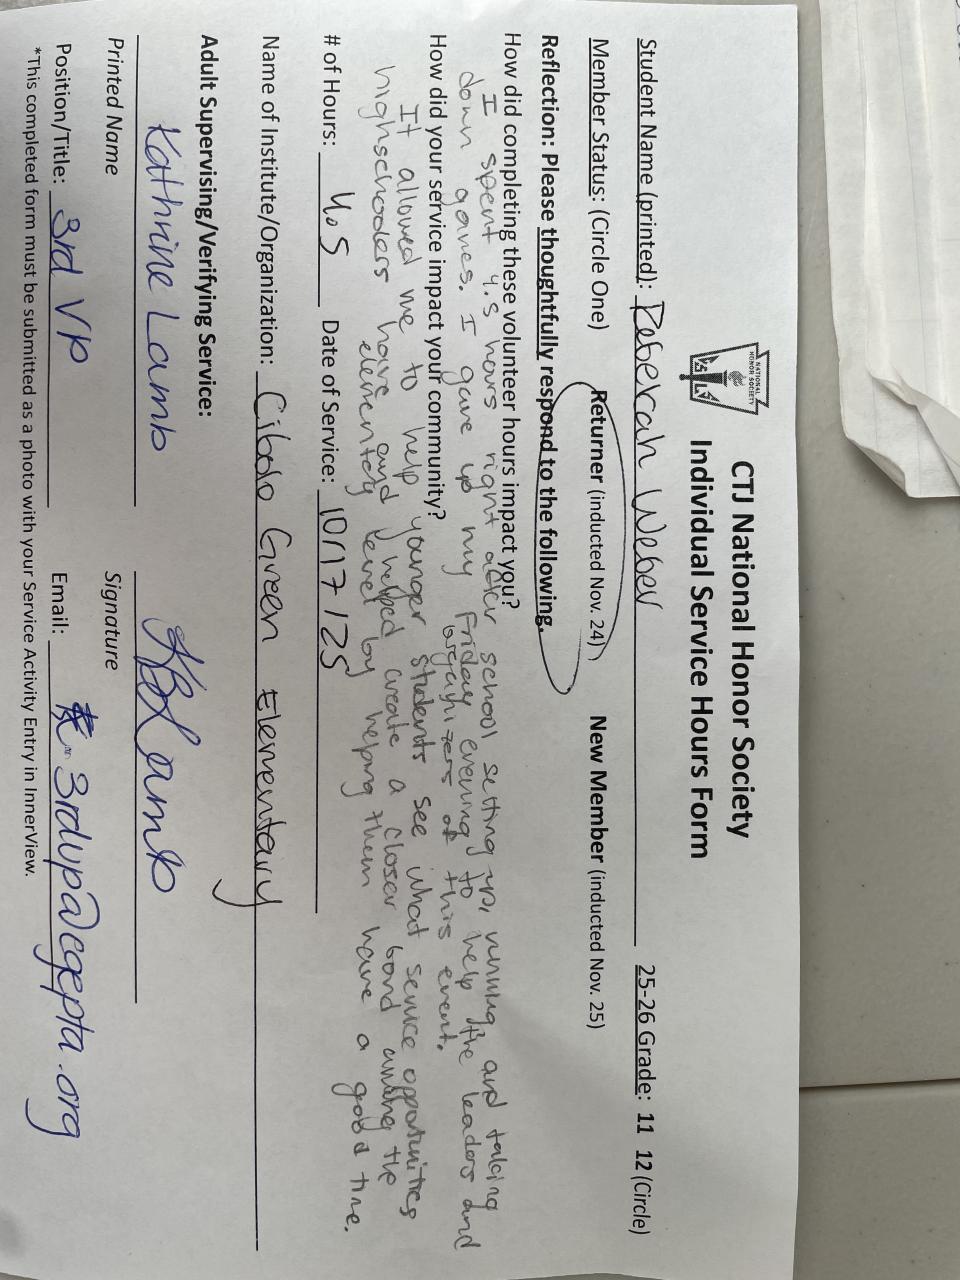 CTJ National Honor Society
Individual Service Hours Form
NATIONAL
HONOR SOCIETY
Student Name (printted): Rebekah Weber 25-26 Grade: 11 12 (Circle)
Member Status: (Circle One) Returner (inducted Nov. 24) New Member (inducted Nov. 25)
Reflection: Please thoughtfully respond to the following.
How did completing these volunteer hours impact you?
I spent 4.5 hours right after school setting up, running, and taking
down games. I gave up my Friday evening to help the leaders and
organizers of this event.
How did your service impact your community?
It allowed me to help younger students see what service opportunities
highschoolers have and helped create a closer bond among the
elementary level by helping them have a good time.
# of Hours: 4.5 Date of Service: 10/17/25
Name of Institute/Organization: Cibolo Green Elementary
Adult Supervising/Verifying Service:
Kathrine Lamb KBLamb
Printed Name Signature
Position/Title: 3rd VP Email: 3rdvp@cgepta.org
*This completed form must be submitted as a photo with your Service Activity Entry in InnerView.